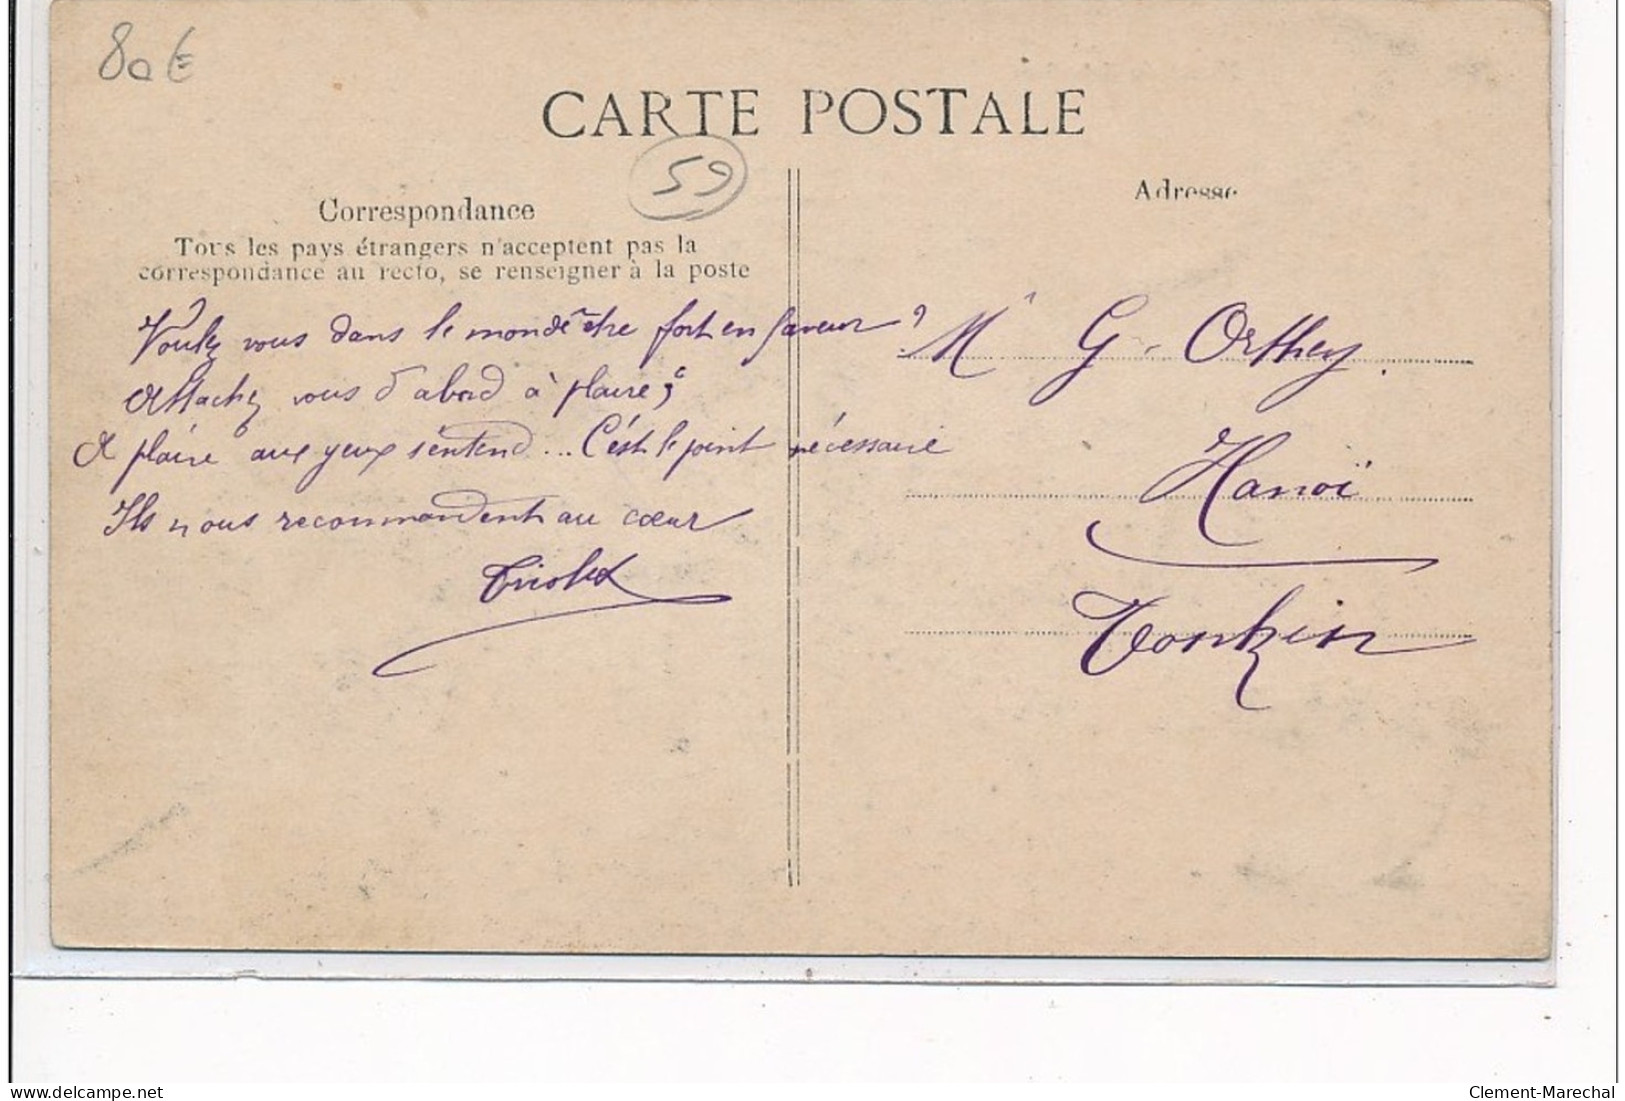 80€
CARTE POSTALE
59
Correspondance
Tous les pays étrangers n'acceptent pas la
correspondance au recto, se renseigner à la poste
Voulez vous dans le monde être fort en faveur?
Attachez vous d'abord à plaire;
A plaire aux yeux s'entend... C'est le point nécessaire
Ils nous recommandent au cœur
Adresse
Mr G. Orthey.
Hanoï
Tonkin
delcampe.net
Clement-Marechal